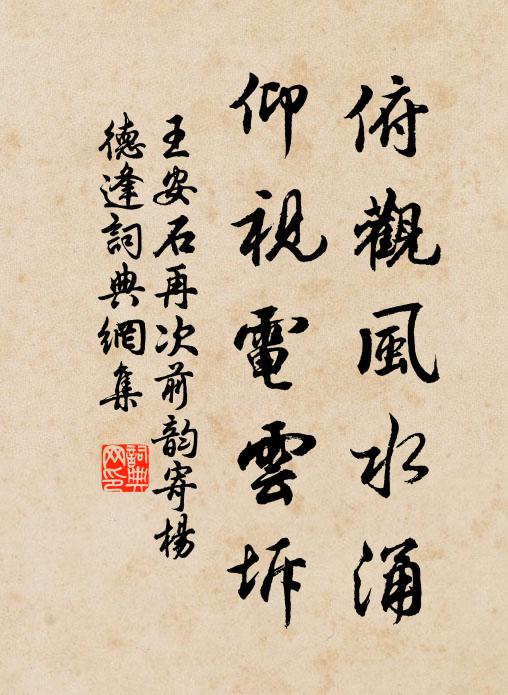 俯觀風水涌
仰視電雲坼
王安石再次前韵寄楊
德逢詞典網集
詞典网印